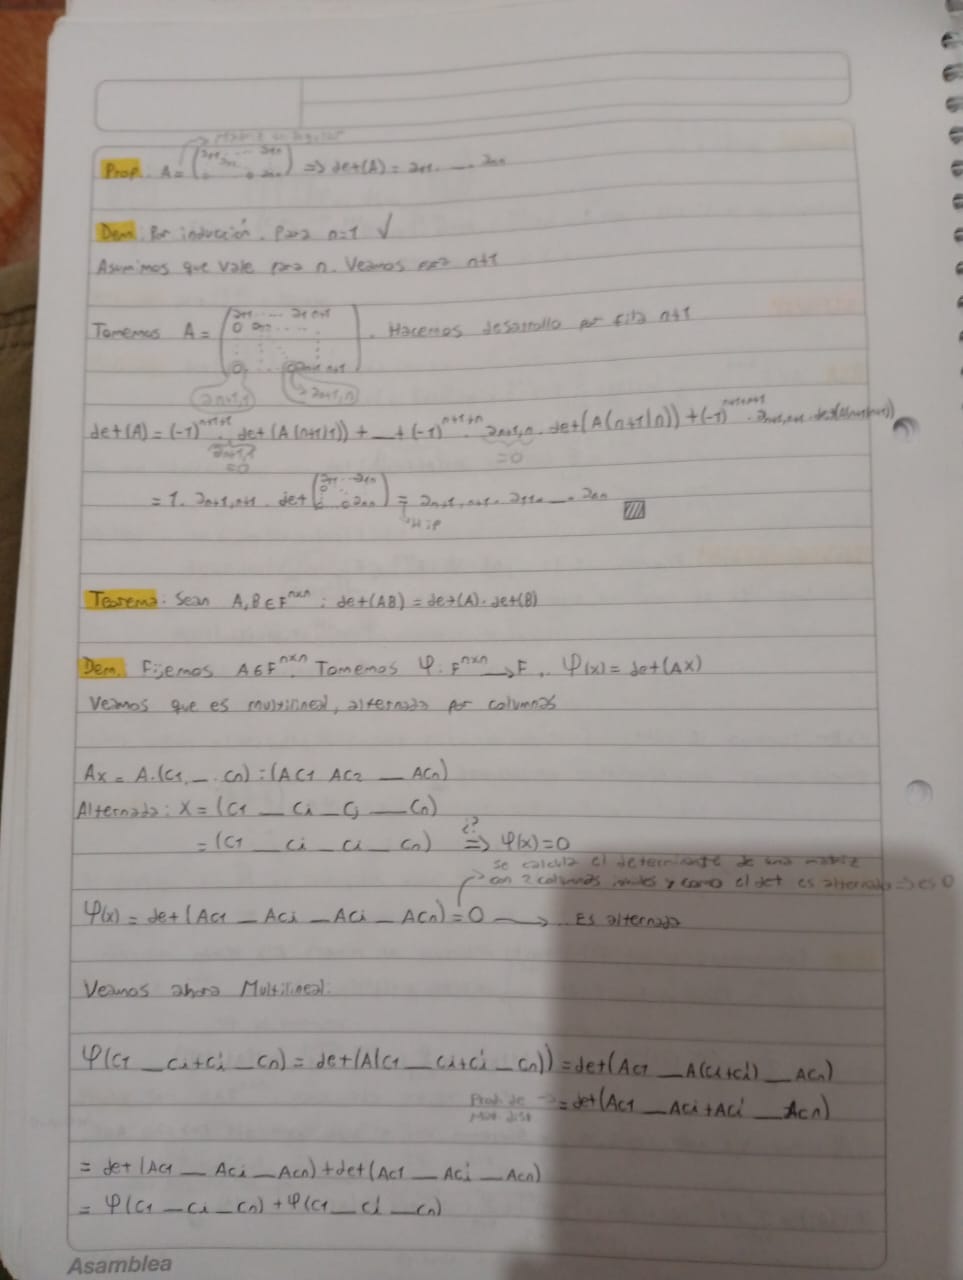 Matriz triangular
Prop. A = (a11 ... a1n a22 0 0 ann) => det(A) = a11. _ . ann
Dem: Por inducción. Para n=1 ✓
Asumimos que vale para n. Veamos para n+1
Tomemos A = (a11 .... a1 n+1 0 a22 ..... 0 0 an+1 n+1). Hacemos desarrollo por fila n+1
an+1,1 an+1,n
det(A) = (-1)^n+1+1 . an+1,1 det(A(n+1|1)) + _ + (-1)^n+1+n . an+1,n . det(A(n+1|n)) + (-1)^n+1+n+1 . an+1,n+1 . det(A(n+1|n+1))
=0 =0
= 1. an+1,n+1 . det (a11 ... a1n 0 0 ann) = an+1,n+1 . a11. _ . ann
Hip
Teorema. Sean A, B ∈ F^nxn : det(AB) = det(A). det(B)
Dem: Fijemos A ∈ F^nxn. Tomemos φ: F^nxn → F, φ(x) = det(AX)
Veamos que es multilineal, alternada por columnas
Ax = A.(C1 _ . Cn) = (AC1 AC2 _ ACn)
Alternada: X = (C1 _ Ci _ Cj _ Cn)
= (C1 _ Ci _ Ci _ Cn) ¿? => φ(x) = 0
se calcula el determinante de una matriz
con 2 columnas iguales y como el det es alternado => es 0
φ(x) = det(AC1 _ ACi _ ACi _ ACn) = 0 → Es alternada
Veamos ahora Multilineal:
φ(C1 _ Ci+Ci' _ Cn) = det(A(C1 _ Ci+Ci' _ Cn)) = det(AC1 _ A(Ci+Ci') _ ACn)
Prod. de Mat. dist → = det(AC1 _ ACi+ACi' _ ACn)
= det(AC1 _ ACi _ ACn) + det(AC1 _ ACi' _ ACn)
= φ(C1 _ Ci _ Cn) + φ(C1 _ Ci' _ Cn)
Asamblea